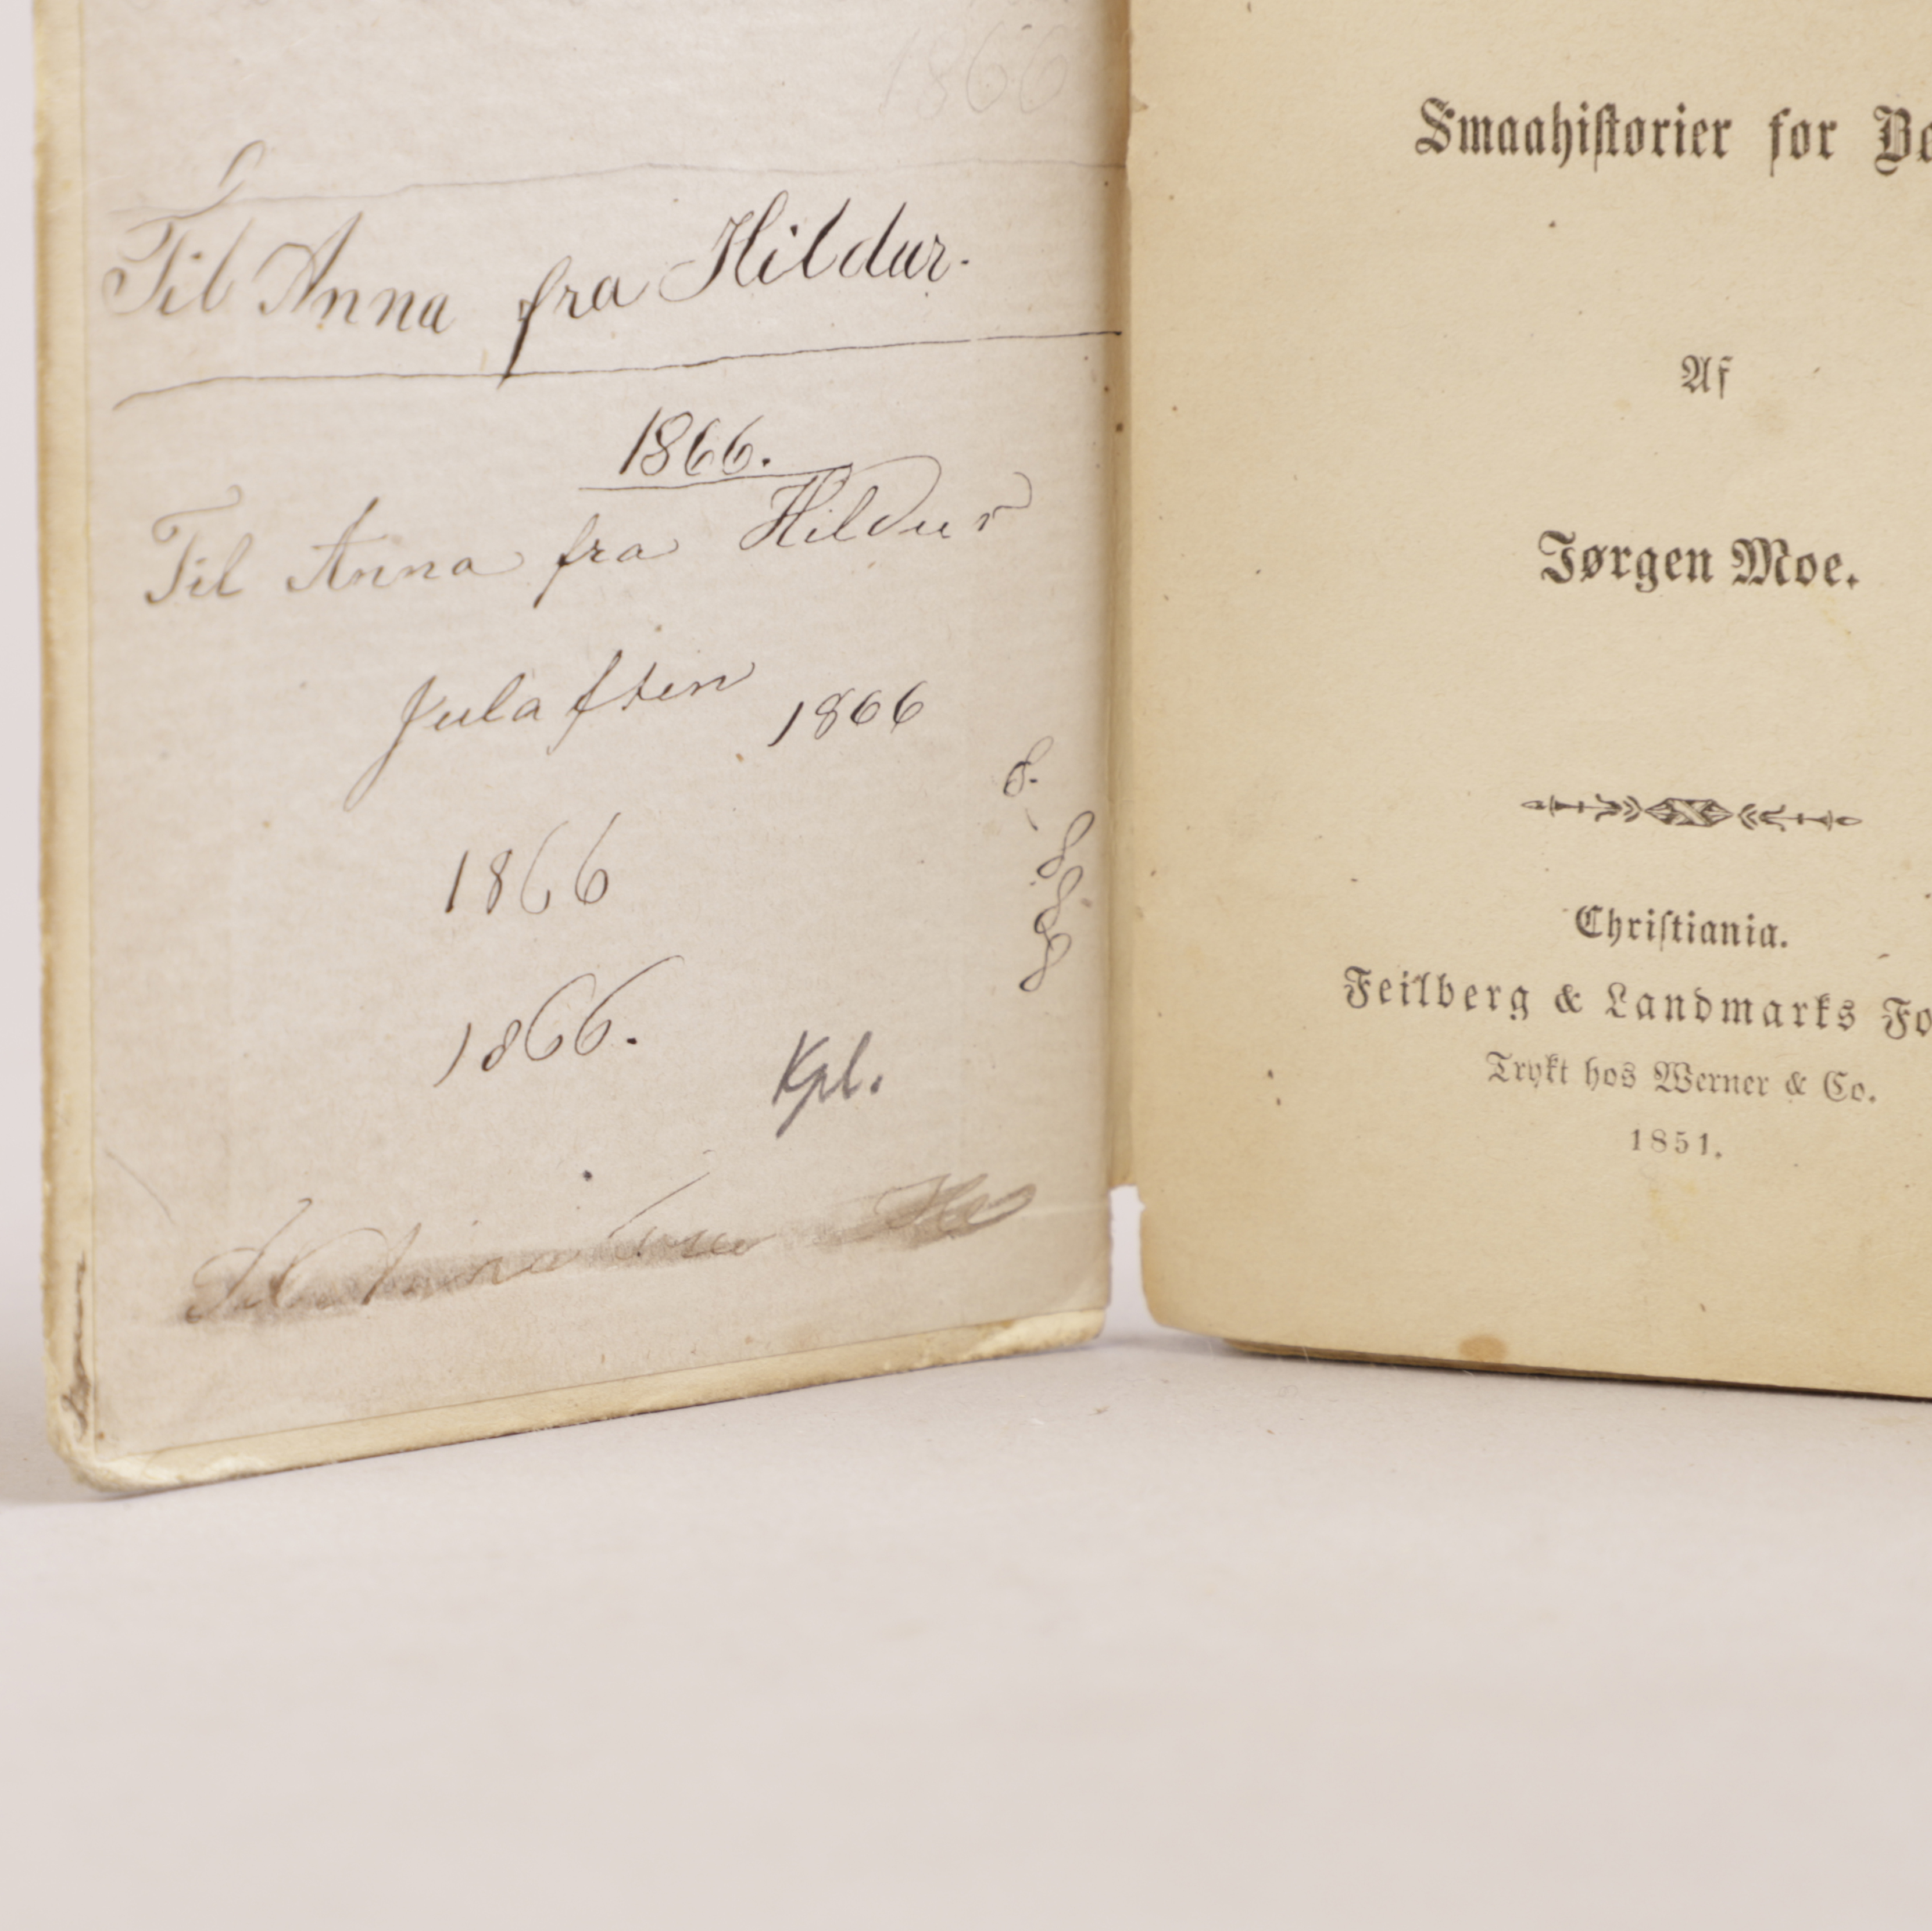 1866
Til Anna fra Hildur.
1866.
Til Anna fra Hildur
Julaften 1866
8.
8
8
8
1866
1866.
Kpl.
Til Anna
Smaahistorier for
Af
Jørgen Moe.
Christiania.
Feilberg & Landmarks
Trykt hos Werner & Co.
1851.